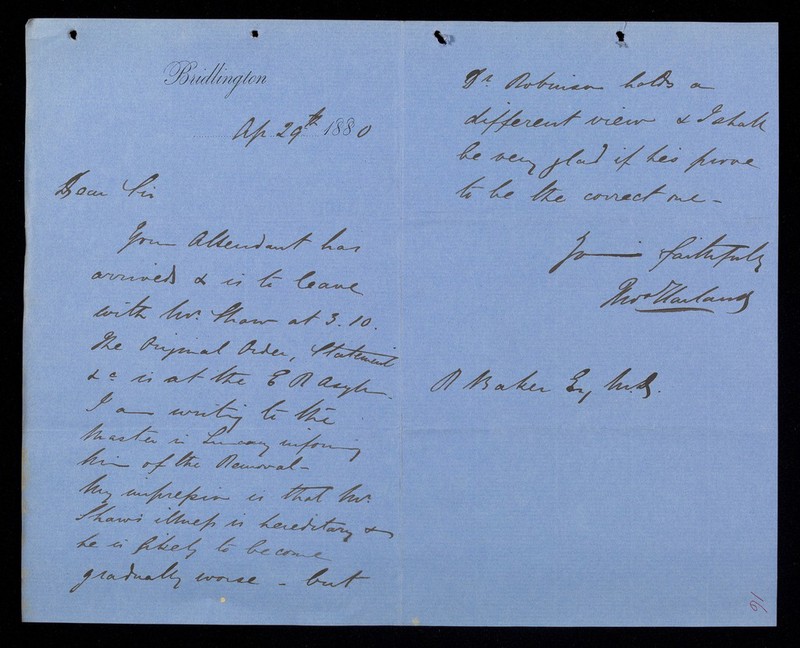 Bridlington
Ap 29th 1880
Dear Sir
Your Attendant has
arrived & is to leave
with Mr. Shaw at 3.10.
The Original Order, Statement
&c is at the E R Asylum.
I am writing to the
Master in Lunacy informing
him of the Removal -
My impression is that Mr.
Shaw's illness is hereditary &
he is likely to become
gradually worse - but
Dr. Robinson holds a
different view & I shall
be very glad if his prove
to be the correct one -
Yours faithfully
Thos Harland
R Baker Esq M.D.
91